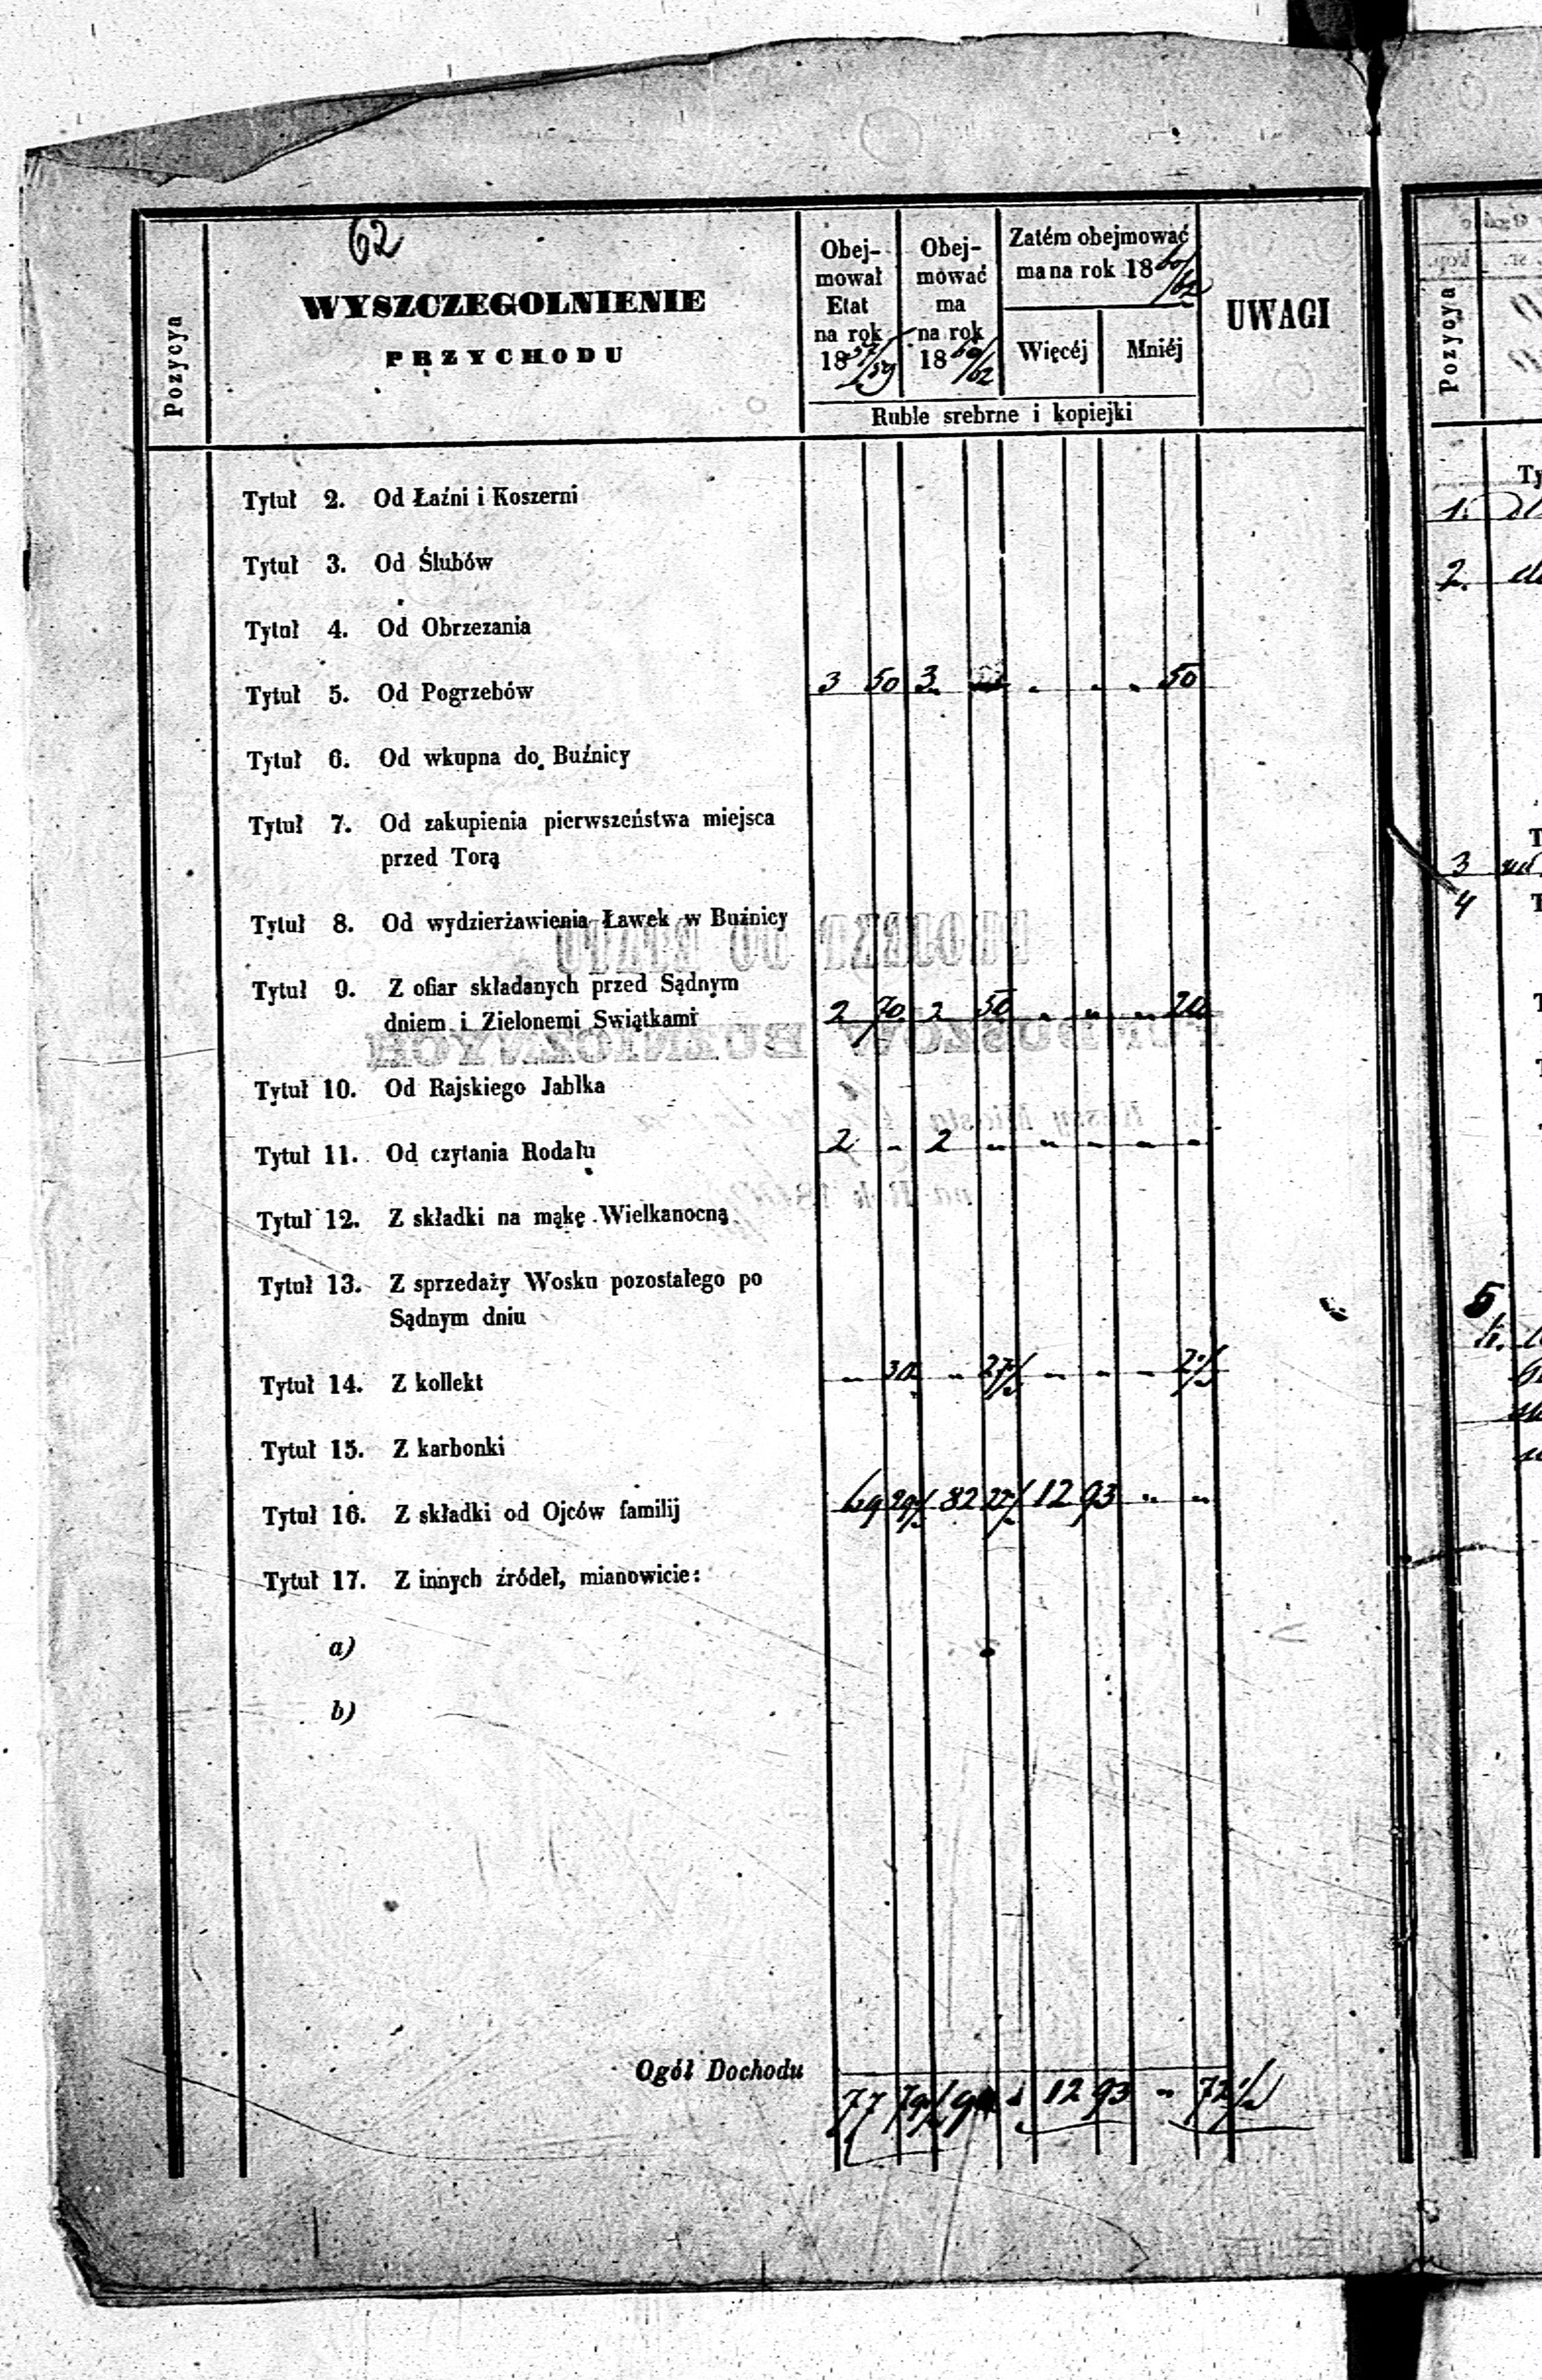 62
WYSZCZEGOLNIENIE
PRZYCHODU
Pozycya
Obej-
mował
Etat
na rok
18 57/59
Obej-
mować
ma
na rok
18 60/62
Zatém obejmować
ma na rok 18 60/62
Więcéj Mniéj
UWAGI
Ruble srebrne i kopiejki
Tytuł 2. Od Łaźni i Koszerni
Tytuł 3. Od Ślubów
Tytuł 4. Od Obrzezania
Tytuł 5. Od Pogrzebów 3 50 3 50
Tytuł 6. Od wkupna do Buźnicy
Tytuł 7. Od zakupienia pierwszeństwa miejsca
przed Torą
Tytuł 8. Od wydzierżawienia Ławek w Buźnicy
Tytuł 9. Z ofiar składanych przed Sądnym
dniem i Zielonemi Swiątkami 2 70 2 50 - - - 20
Tytuł 10. Od Rajskiego Jabłka
Tytuł 11. Od czytania Rodału 2 - 2 - - - - -
Tytuł 12. Z składki na mąkę Wielkanocną
Tytuł 13. Z sprzedaży Wosku pozostałego po
Sądnym dniu
Tytuł 14. Z kollekt - 30 - 27 1/2 - - - 2 1/2
Tytuł 15. Z karbonki
Tytuł 16. Z składki od Ojców familij 69 29 1/2 82 22 1/2 12 93 - -
Tytuł 17. Z innych źródeł, mianowicie:
a)
b)
Ogół Dochodu 77 79 1/2 12 93 - 72 1/2
Pozycya
kop.
1.
2.
3
4
5